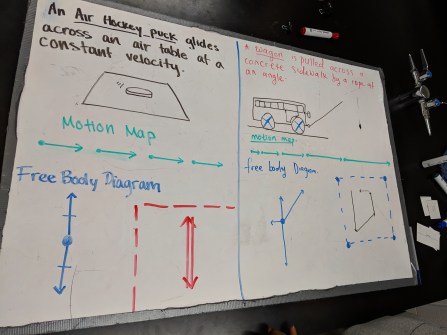 An Air Hockey puck glides
across an air table at a
constant velocity.
Motion Map
Free Body Diagram
A wagon is pulled across a
concrete sidewalk by a rope at
an angle.
motion map
free body Diagram